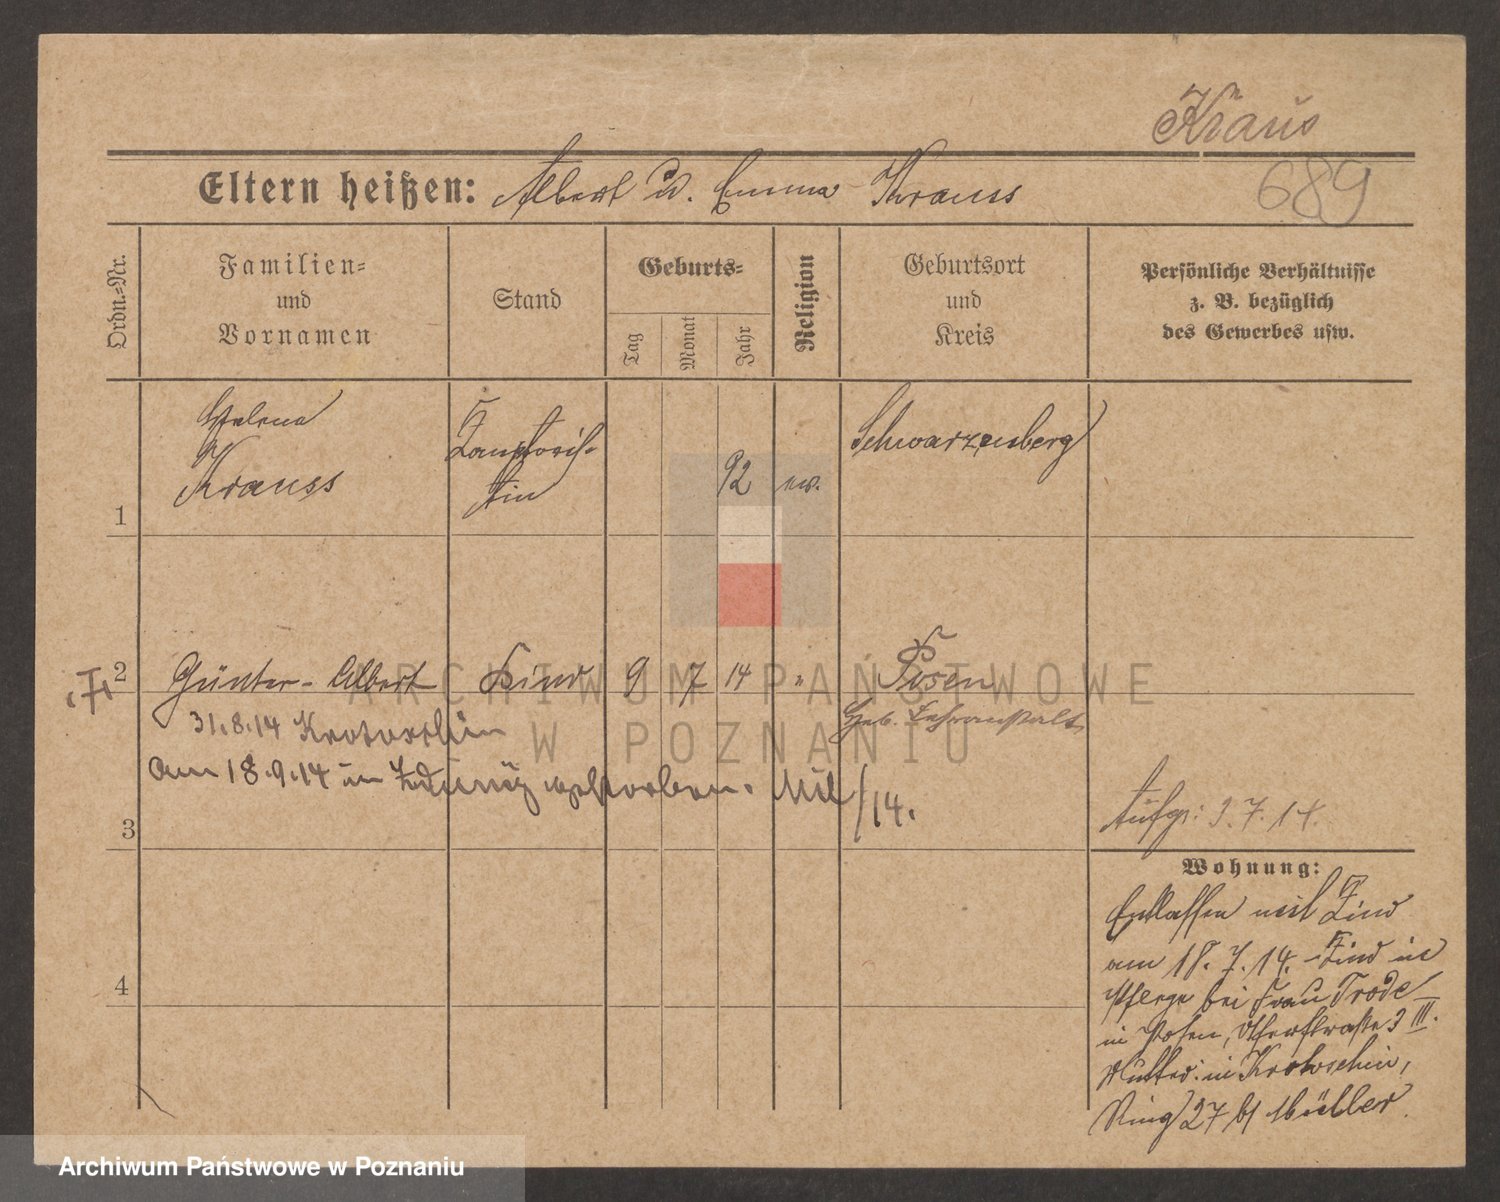 Kraus
689
Eltern heißen: Albert u. Emma Krauss
Ordn.-Nr.
Familien-
und
Vornamen
Stand
Geburts-
Tag
Monat
Jahr
Religion
Geburtsort
und
Kreis
Persönliche Verhältnisse
z. B. bezüglich
des Gewerbes usw.
1
Helena
Krauss
Kontoris-
tin
92
ev.
Schwarzenberg
2
Günter-Albert
Kind
9
7
14
"
Posen
Heb. Lehranstalt
31.8.14 Krotoschin
am 18.9.14 in Zduny gestorben.
/14.
3
Aufg.: 9.7.14.
Wohnung:
Entlassen mit Kind
am 18.7.14. Kind in
Pflege bei Frau Trode
in Posen, 3 III.
Mutter in Krotoschin,
Ring 27 b/ Müller
4
ARCHIWUM PAŃSTWOWE
W POZNANIU
Archiwum Państwowe w Poznaniu